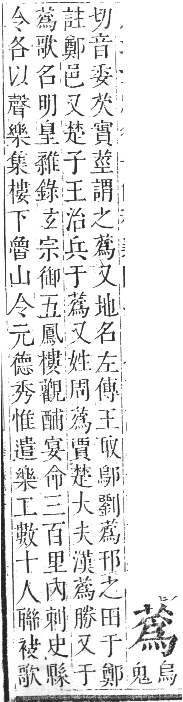 蔿烏鬼
切音委芡實莖謂之蔿又地名左傳王取鄔劉蔿邘之田于鄭
註鄭邑又楚子王治兵于蔿又姓周蔿賈楚大夫漢蔿勝又于
蔿歌名明皇雜錄玄宗御五鳳樓觀酺宴命三百里內刺史縣
令各以聲樂集樓下魯山令元德秀惟遣樂工數十人聯袂歌